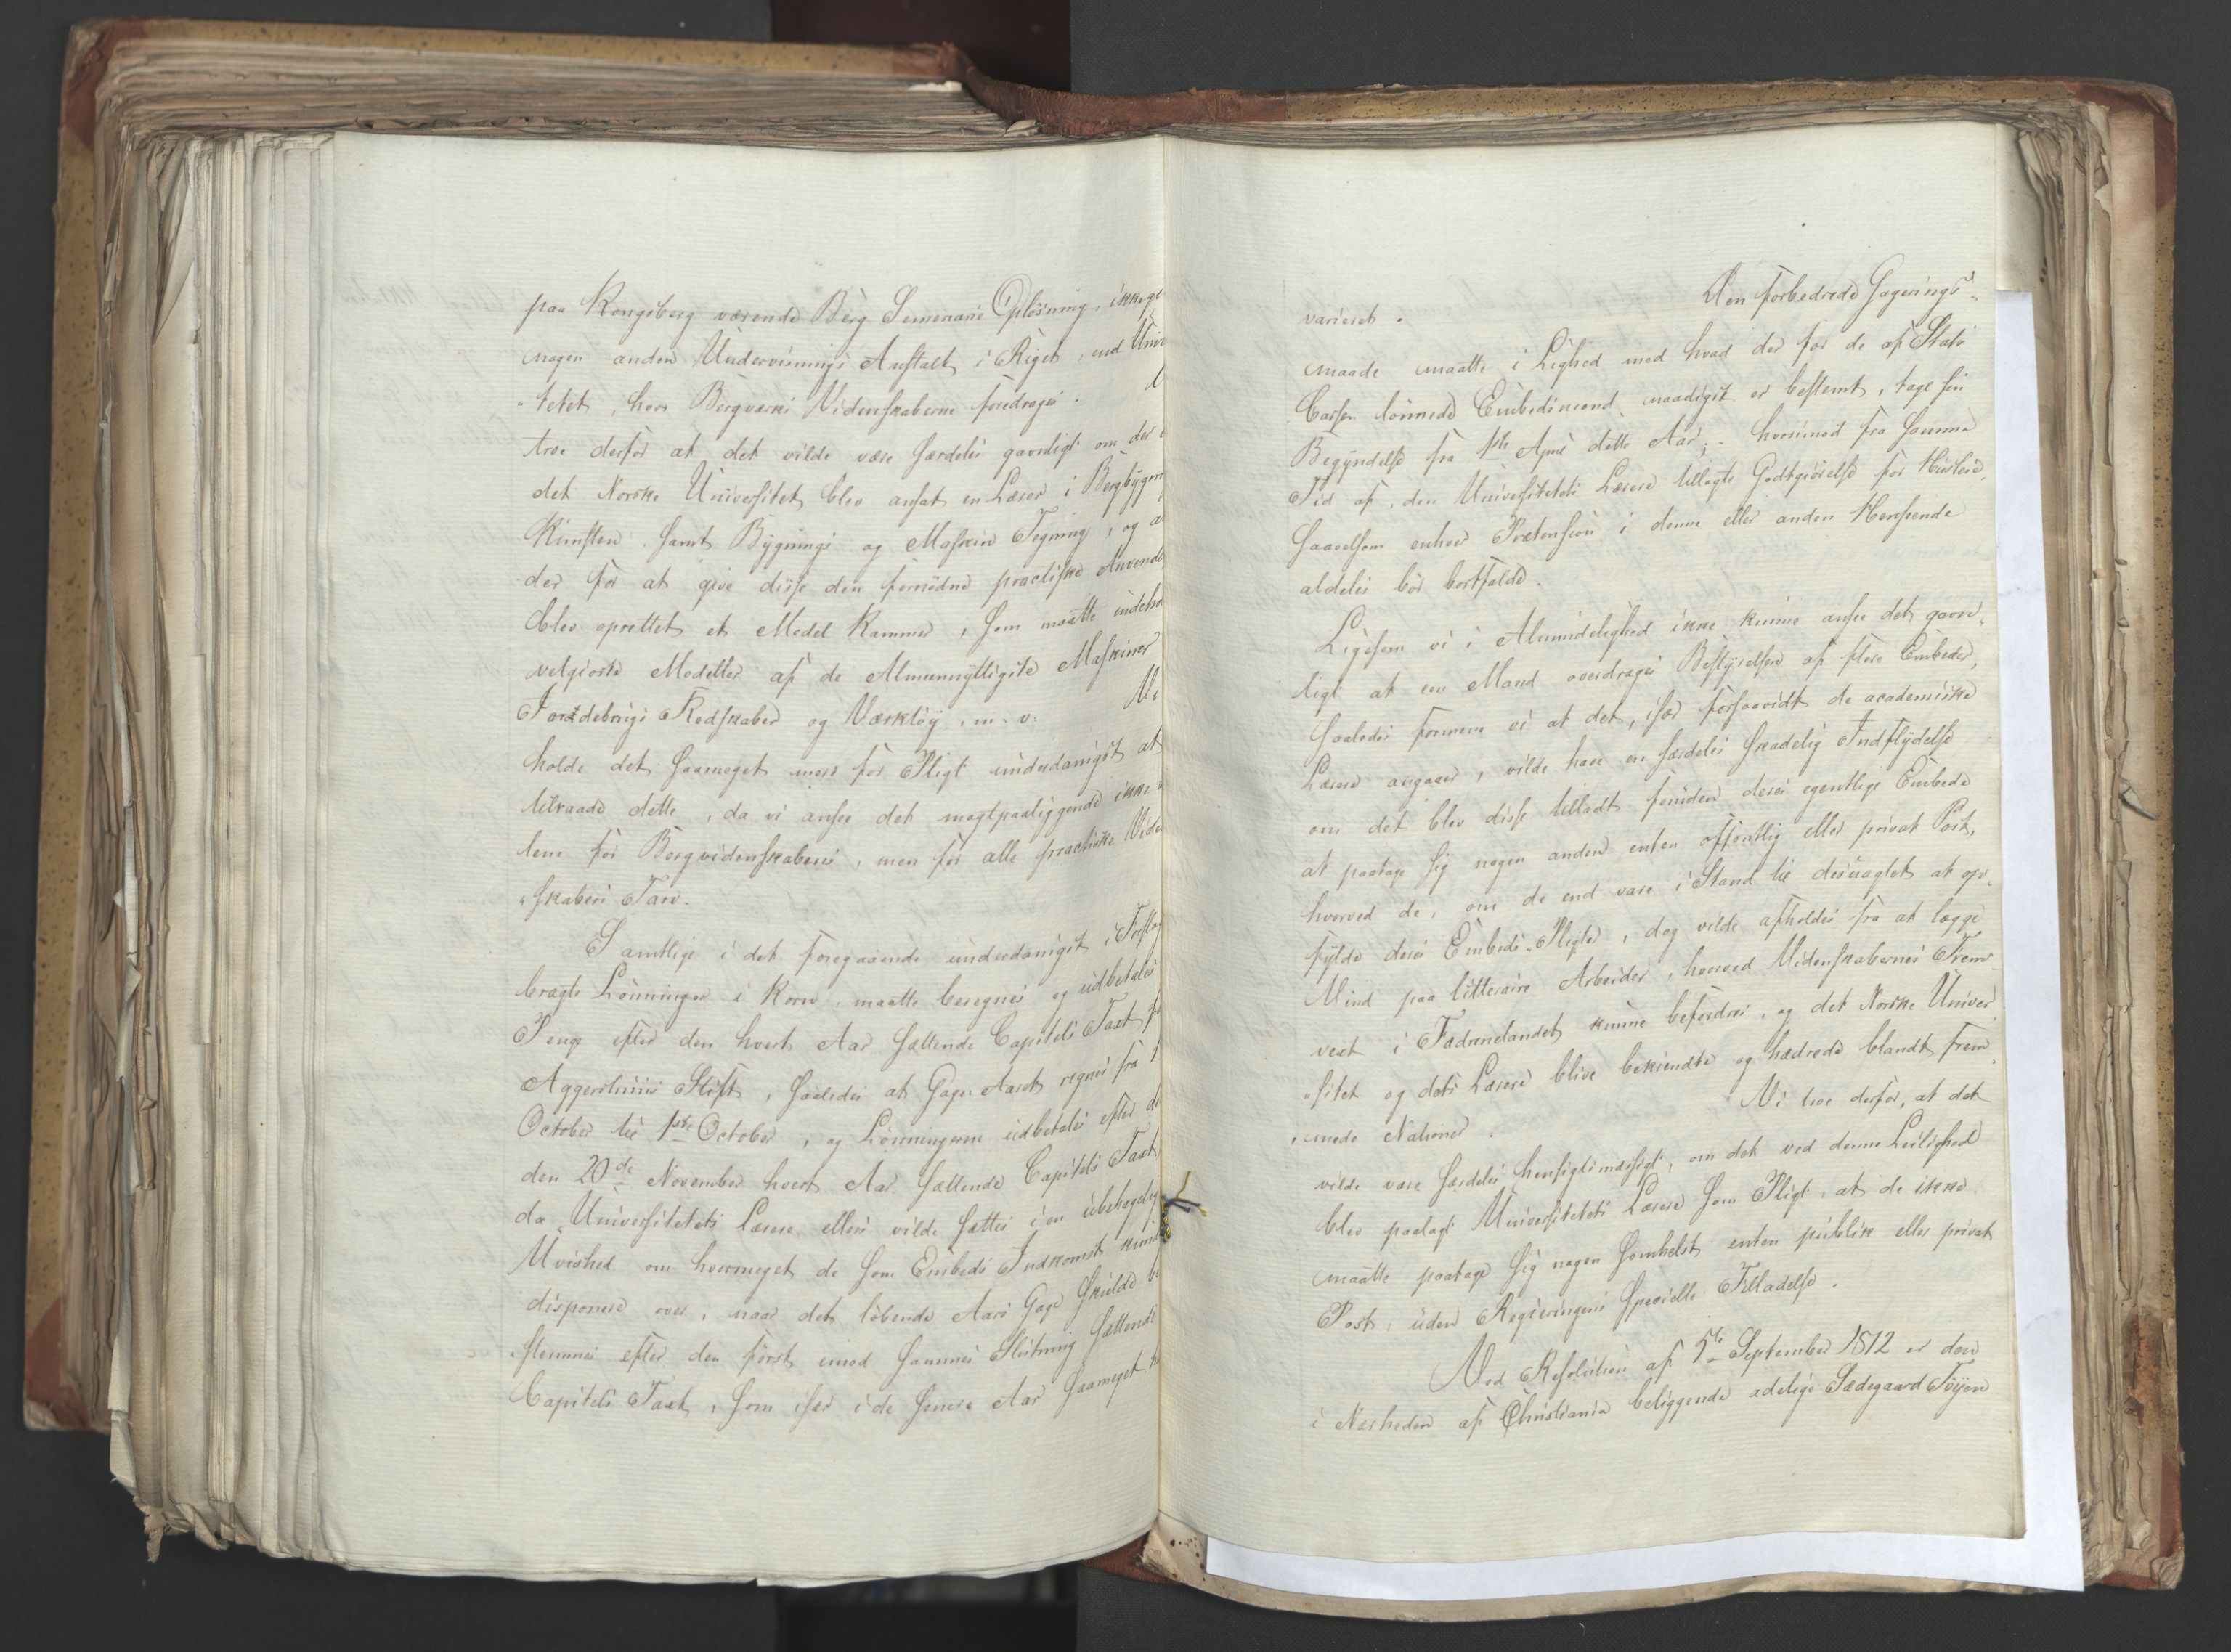 paa Kongsberg værende Berg Seminarii Opløsning, ikke
nogen anden Underviisnings Anstalt i Riget, end Univ
"tetet, hvor Bergværks Videnskaberne foredrages.
troe derfor at det vilde være særdeles gavnligt om der
det Norske Universitet blev ansat en Lærer i Bergbygn
Kunsten samt Bygnings og Maskin Tegning, og a
der for at give disse den fornødne practiske Anvende
blev oprettet et Model Kammer, som maatte indeho
velgiorte Modeller af de Almeennyttigste Maskiner
Jorddebrugs Redskaber og Værktøy, m. v. Vi
holde det saameget mere for Pligt underdanigst at
tilraade dette, da vi ansee det magtpaaliggende ikke
lene for Bergvidenskabens, men for alle practiske Viden
"skabers Tarv.
Samtlige i det foregaaende underdanigst i Forslag
bragte Lønninger i Korn, maatte beregnes og udbetales
Penge efter den hvert Aar sættende Capitels Taxt f
Aggershuus Stift, saaledes at Gage Aaret regnes fra 1
October til 1ste October, og Lønningerne udbetales efter d
den 20de November hvert Aar sættende Capitels Taxt
da Universitetets Lærere ellers vilde sættes i en ubehagelig
Uvished om hvormeget de som Embeds Indkomst kund
disponere over, naar det løbende Aars Gage skulde be
"stemmes efter den først imod sammes Slutning sættende
Capitels Taxt, som især i de senere Aar saameget h
varieret. Den forbedrede Gagerings-
maade maatte i Lighed med hvad der for de af Stats
Cassen lønnede Embedsmænd naadigst er bestemt, tage sin
Begyndelse fra 1ste April dette Aar; hvorimod fra samme
Tid af, den Universitetets Lærere tillagte Godtgiørelse for Huusleie,
saavelsom enhver Prætension i denne eller anden Henseende
aldeles bør bortfalde.
Ligesom vi i Almindelighed ikke kunne ansee det gavn-
ligt at een Mand overdrages Bestyrelsen af flere Embeder,
saaledes formene vi at det, især forsaavidt de academiske
Lærere angaaer, vilde have en særdeles skadelig Indflydelse
om det blev disse tilladt foruden deres egentlige Embede
at paatage sig nogen anden enten offentlig eller privat Post,
hvorved de, om de end vare i Stand til desuagtet at op-
fylde deres Embeds-Pligter, dog vilde afholdes fra at lægge
Vind paa litteraire Arbeider, hvorved Videnskabernes Frem
vext i Fædrenelandet kunne befordres, og det Norske Univer
"sitet og dets Lærere blive bekiendte og hædrede blandt frem
"mede Nationer. Vi troe derfor, at det
vilde være særdeles hensigtsmæssigt, om det ved denne Leilighed
blev paalagt Universitetets Lærere som Pligt, at de ikke
maatte paatage sig nogen somhelst enten publik eller privat
Post, uden Regieringens specielle Tilladelse.
Ved Resolution af 5te September 1812 er den
i Nærheden af Christiania beliggende adelige Sædegaard Tøyen